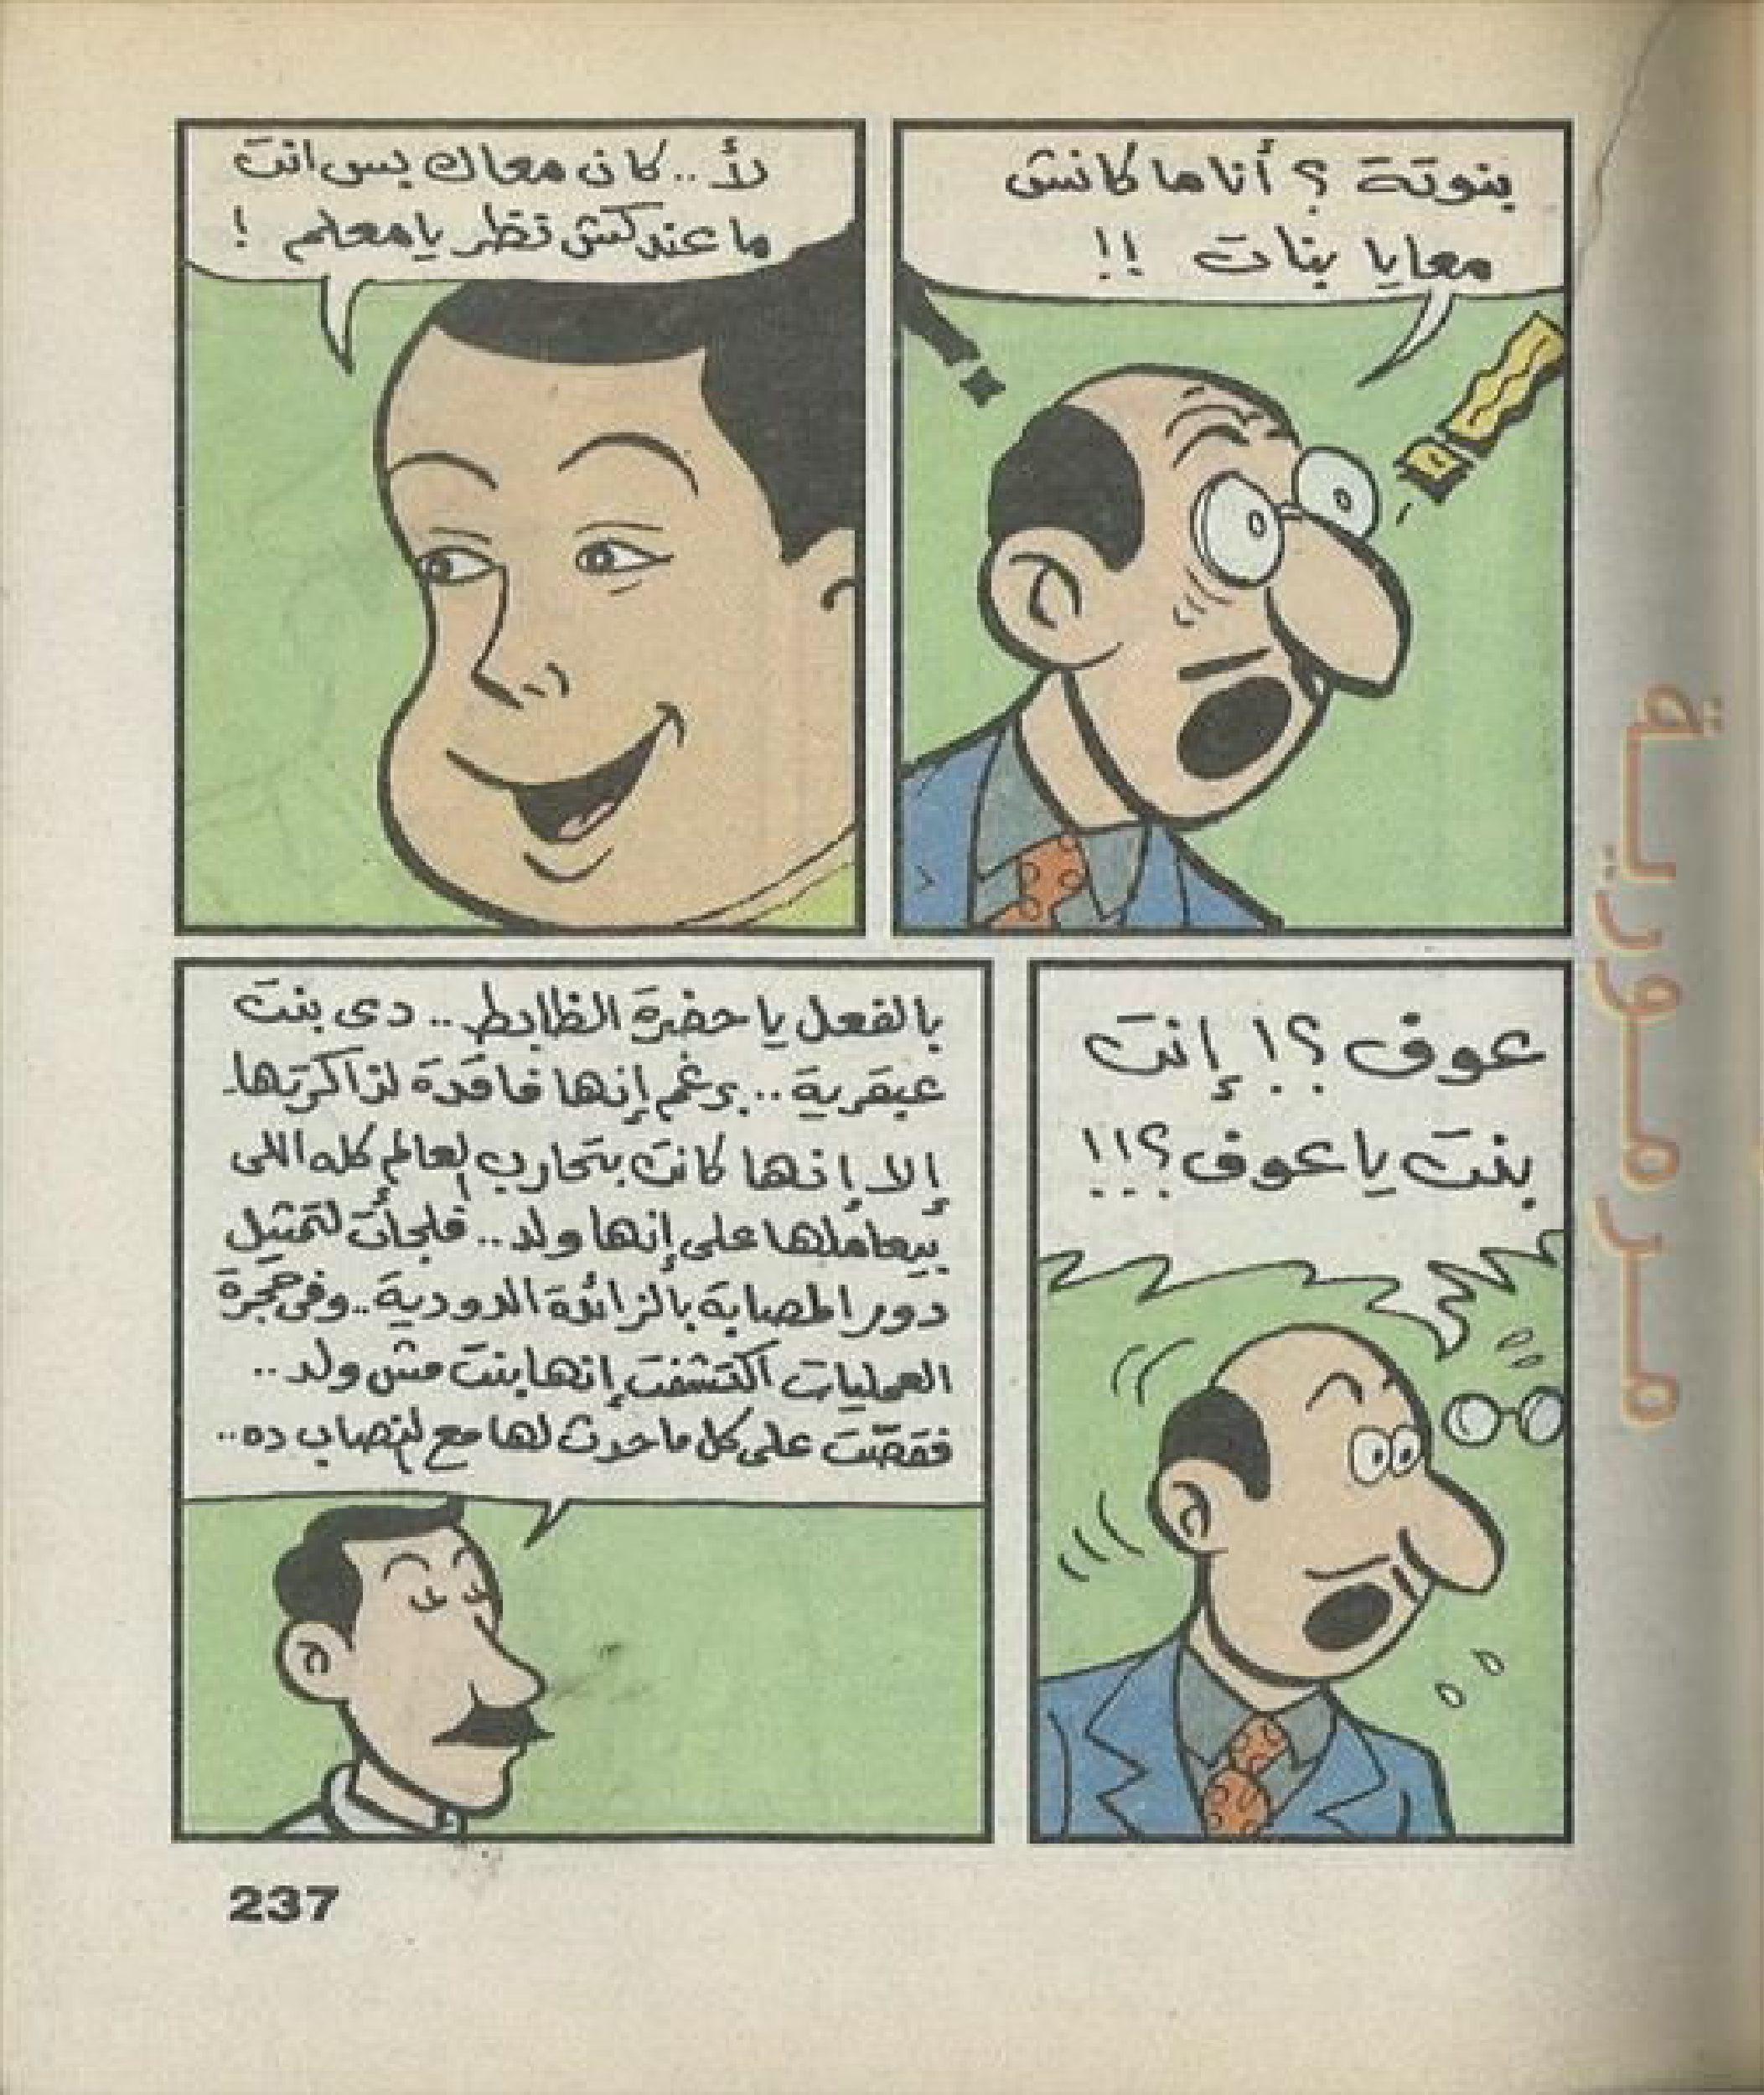 بنوتة ؟ أنا ما كانش
معايا بنات !!
لأ .. كان معاك بس انت
ما عندكش نظر يا معلم !
عوف ؟! إنت
بنت يا عوف ؟!!
بالفعل يا حضرة الظابط .. دى بنت
عبقرية .. برغم إنها فاقدة لذاكرتها
إلا إنها كانت بتحارب العالم كله اللى
بيعاملها على إنها ولد .. فلجأت لتمثيل
دور المصابة بالزائدة الدودية .. وفى حجرة
العمليات اكتشفت إنها بنت مش ولد ..
فقصّت على كل ما حدث لها مع النصاب ده ..
مرمورية
237